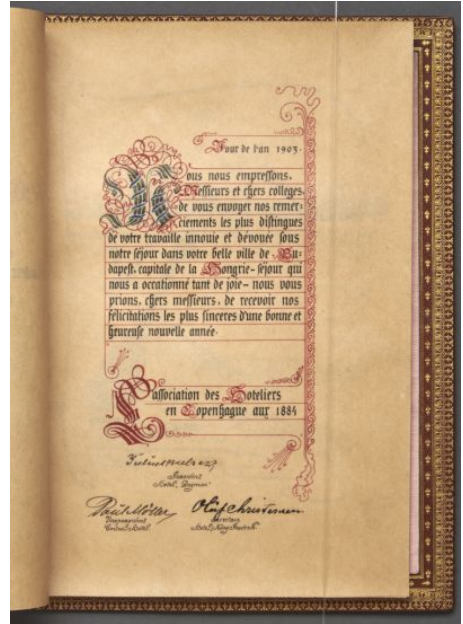 Jour de l'an 1903.
Nous nous empressons,
Messieurs et chers colleges,
de vous envoyer nos remer=
ciements les plus distingues
de votre travaille innouie et dévouée sous
notre séjour dans votre belle ville de Bu=
dapest, capitale de la Hongrie - séjour qui
nous a occationné tant de joie - nous vous
prions, chers messieurs, de recevoir nos
félicitations les plus sinceres d'une bonne et
heureuse nouvelle année.
L'association des Hoteliers
en Copenhague aux 1884
President
Paul Möller
Oluf Christensen